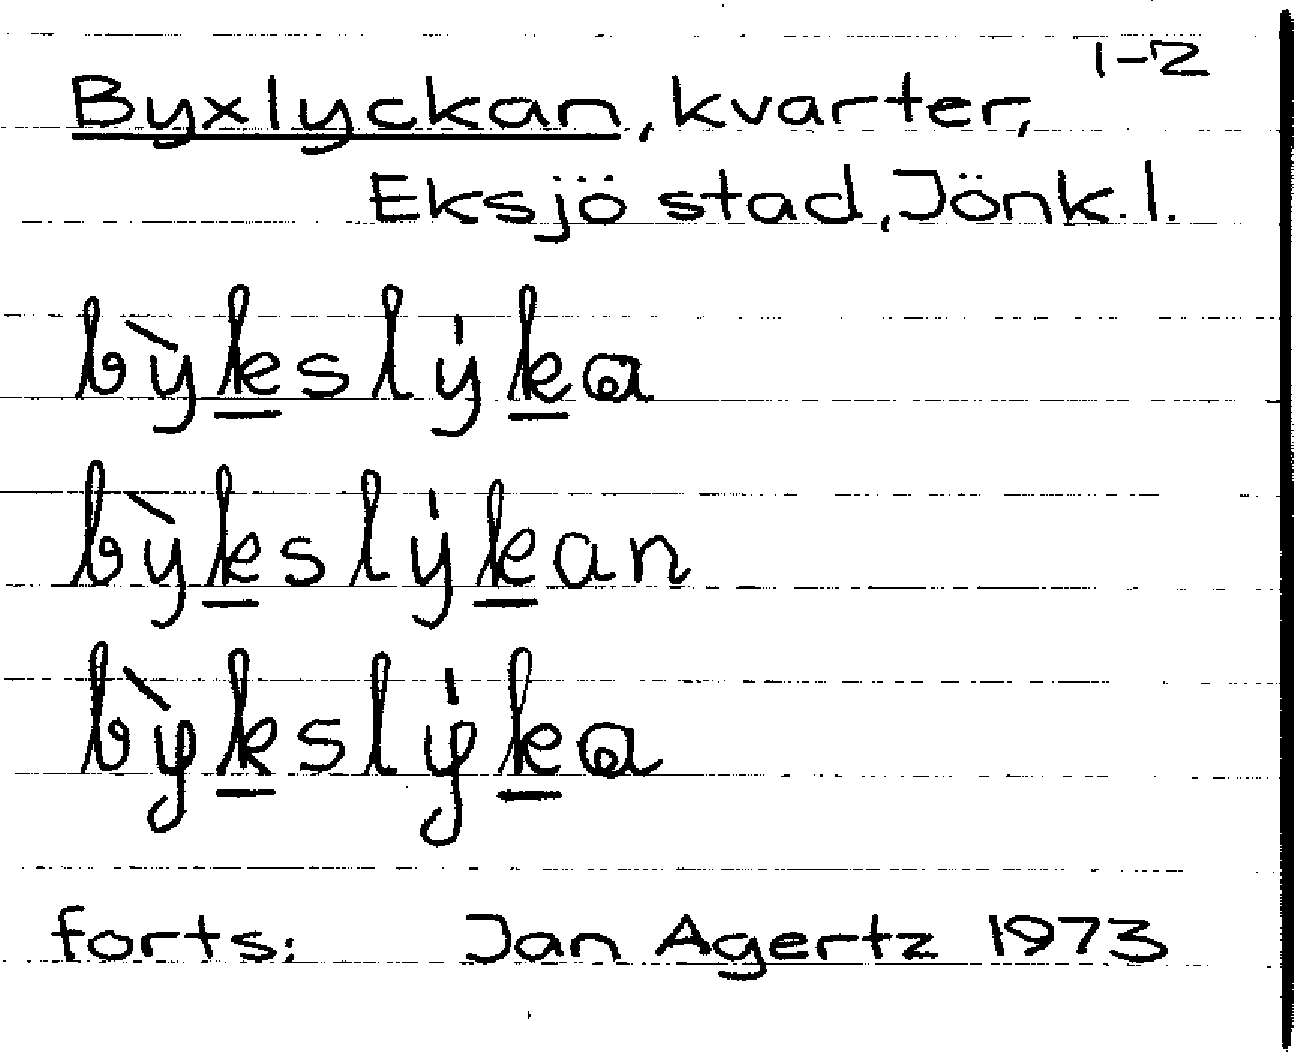 1-2
Byxlyckan, kvarter,
Eksjö stad, Jönk. l.
bỳksly̍kɑ
bỳksly̍kan
bỳksly̍kɑ
forts: Jan Agertz 1973